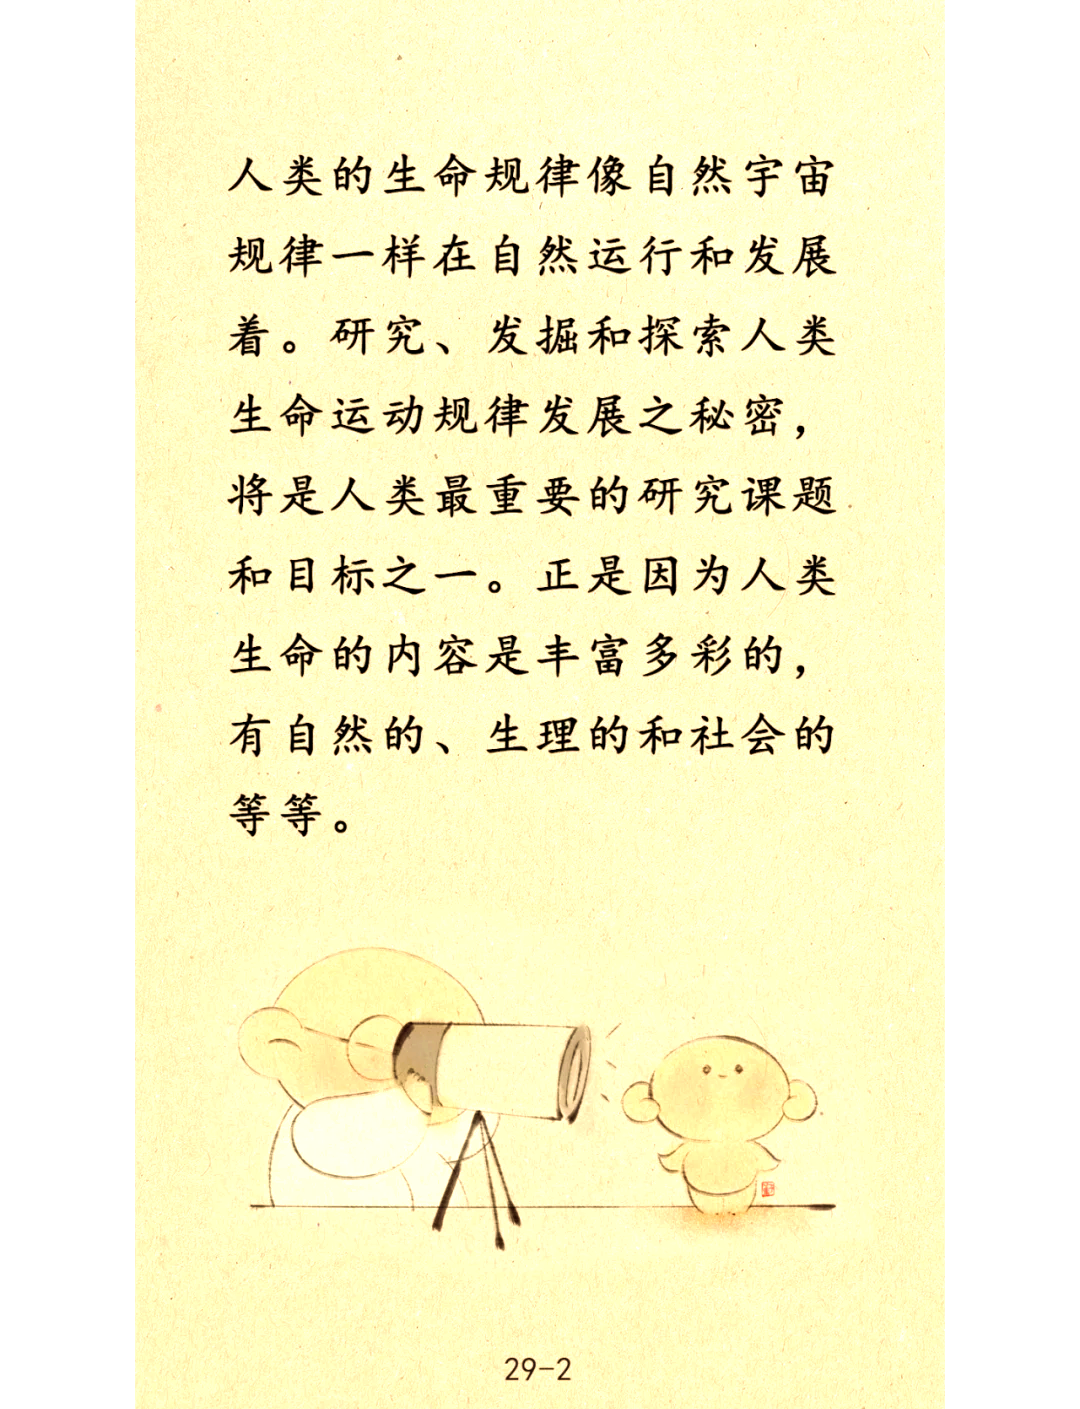 人类的生命规律像自然宇宙
规律一样在自然运行和发展
着。研究、发掘和探索人类
生命运动规律发展之秘密，
将是人类最重要的研究课题
和目标之一。正是因为人类
生命的内容是丰富多彩的，
有自然的、生理的和社会的
等等。
29-2